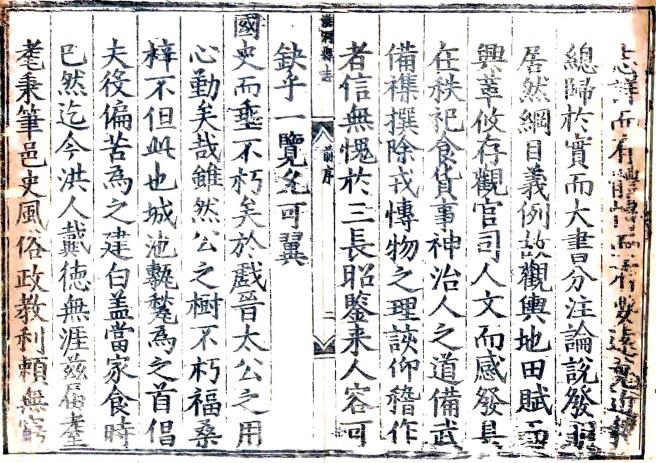 總歸於實而大書分注論說發明
居然綱目義例故觀輿地田賦而
興革攸存觀官司人文而感發具
在秩祀食貨事神治人之道備武
備襍撰除戎慱物之理該仰稽作
者信無愧於三長昭鑒来人容可
缺乎一覽多可翼
洪洞縣志
前序
二
國史而垂不朽矣於戲晉太公之用
心勤矣哉雖然公之樹不朽福桑
梓不但此也城池甎甃為之首倡
夫役偏苦為之建白盖當家食時
已然迄今洪人戴德無涯兹届耋
耄秉筆邑史風俗政教利頼無窮